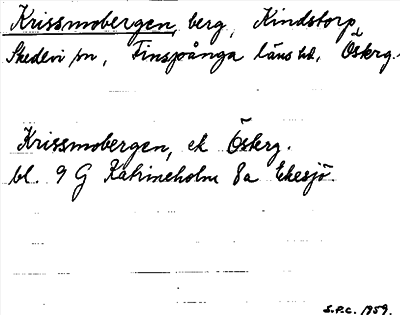 Krissmobergen, berg, Kindstorp
Skedevi sn, Finspånga läns hd, Österg.
Krissmobergen, ek Österg.
bl. 9 G Katrineholm 8a Ekesjö
S.P.C. 1959.